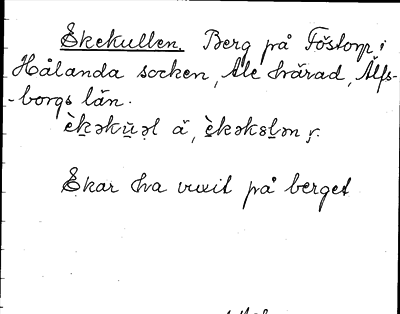 Ekekullen. Berg på Föstorp i
Hålanda socken, Ale härad, Älfs-
-borgs län.
Ekar ha vuxit på berget